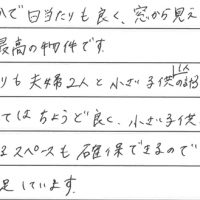 で日当たりも良く、窓から見え
最高の物件です.
りも夫婦2人と小さい子供1人の計
てはちょうど良く、小さい子供
るスペースも確保できるので
足しています.